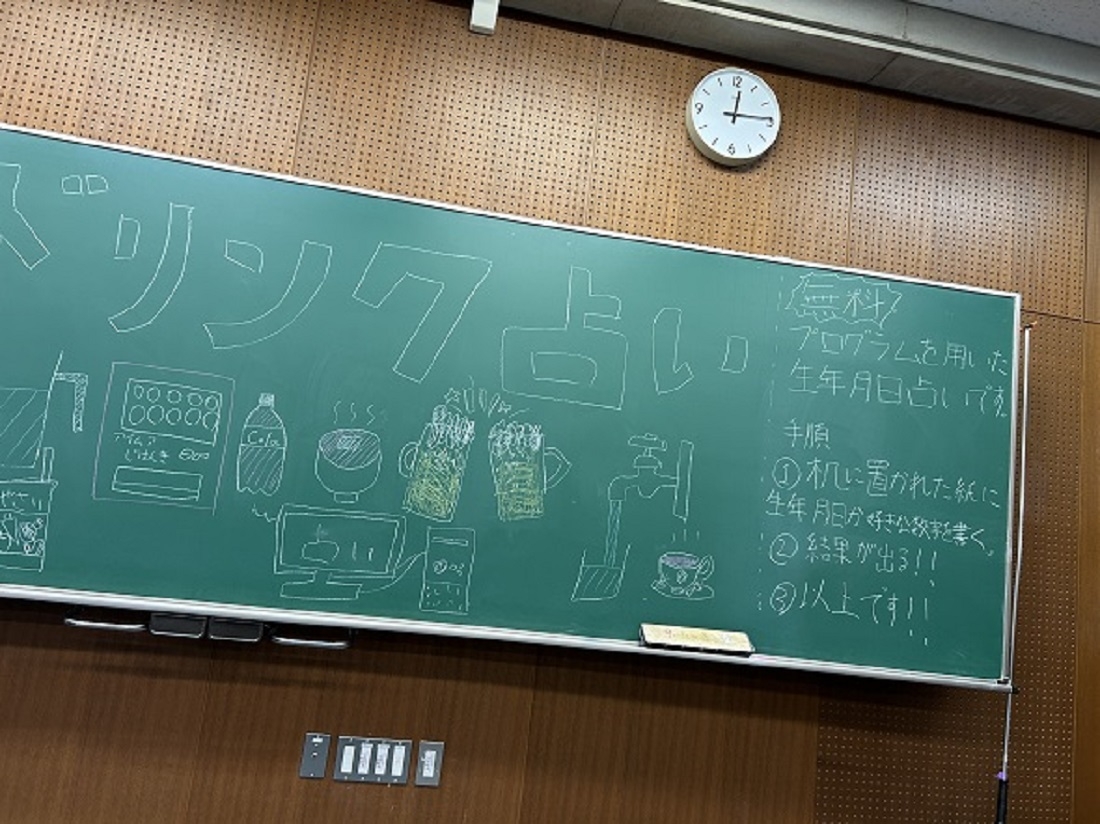 ドリンク占い
無料
プログラムを用いた
生年月日占いです。
手順
①机に置かれた紙に
生年月日か好きな数字を書く。
②結果が出る!!
③以上です!!
Cola
やさい
12
9
6